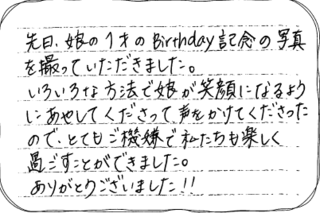 先日、娘の1才のBirthday記念の写真
を撮っていただきました。
いろいろな方法で娘が笑顔になるよう
にあやしてくださって、声をかけてくださった
ので、とてもご機嫌で私たちも楽しく
過ごすことができました。
ありがとうございました!!